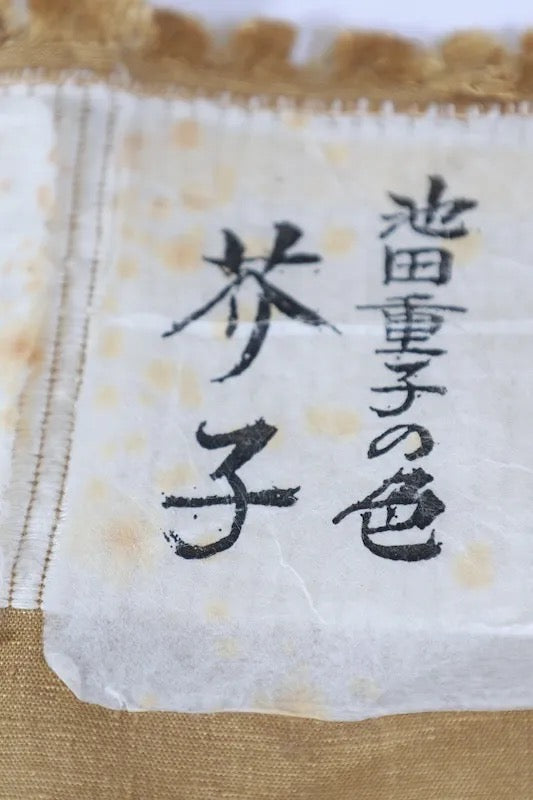 池田重子の色
芥子